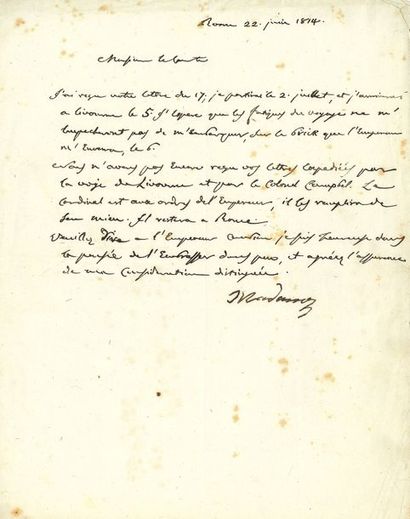 Rome 22. juin 1814.
Monsieur le Comte
J'ai reçu votre lettre du 17, je partirai le 2. juillet, et j'arriverai
a Livourne le 5. J'espere que les fatigues du voyage ne m'
empecheront pas de m'embarquer sur le brick que l'Empereur
m'envoie, le 6.
Nous n'avons pas encore reçu vos lettres expediées par
la voye de Livourne et par le Colonel Campbell. Le
Cardinal est aux ordres de l'Empereur, il les remplira de
son mieux. Il restera a Rome
Veuillez dire a l'Empereur combien je suis heureuse dans
la pensée de l'embrasser dans peu, et agréez l'assurance
de ma consideration distinguée.
Madame